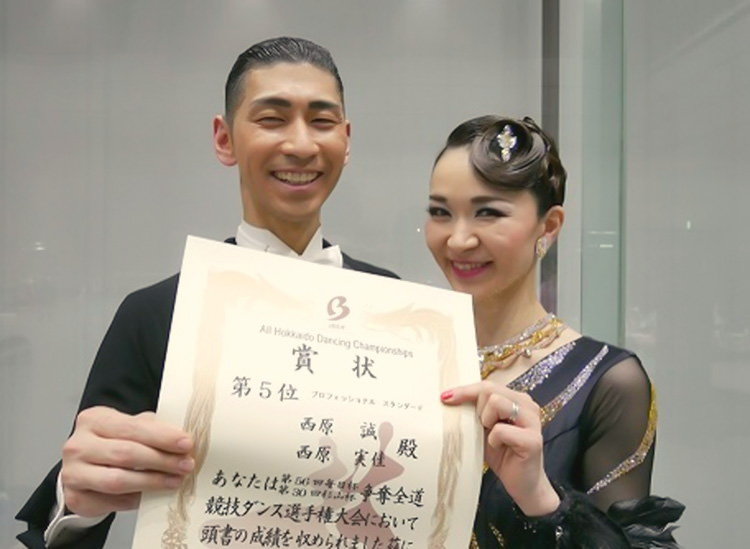 All Hokkaido Dancing Championships
賞状
第5位 プロフェッショナル スタンダード
西原 誠
西原 実佳 殿
あなたは 第56回 杯
第30回 杯 争奪全道
競技ダンス選手権大会において
頭書の成績を収められました